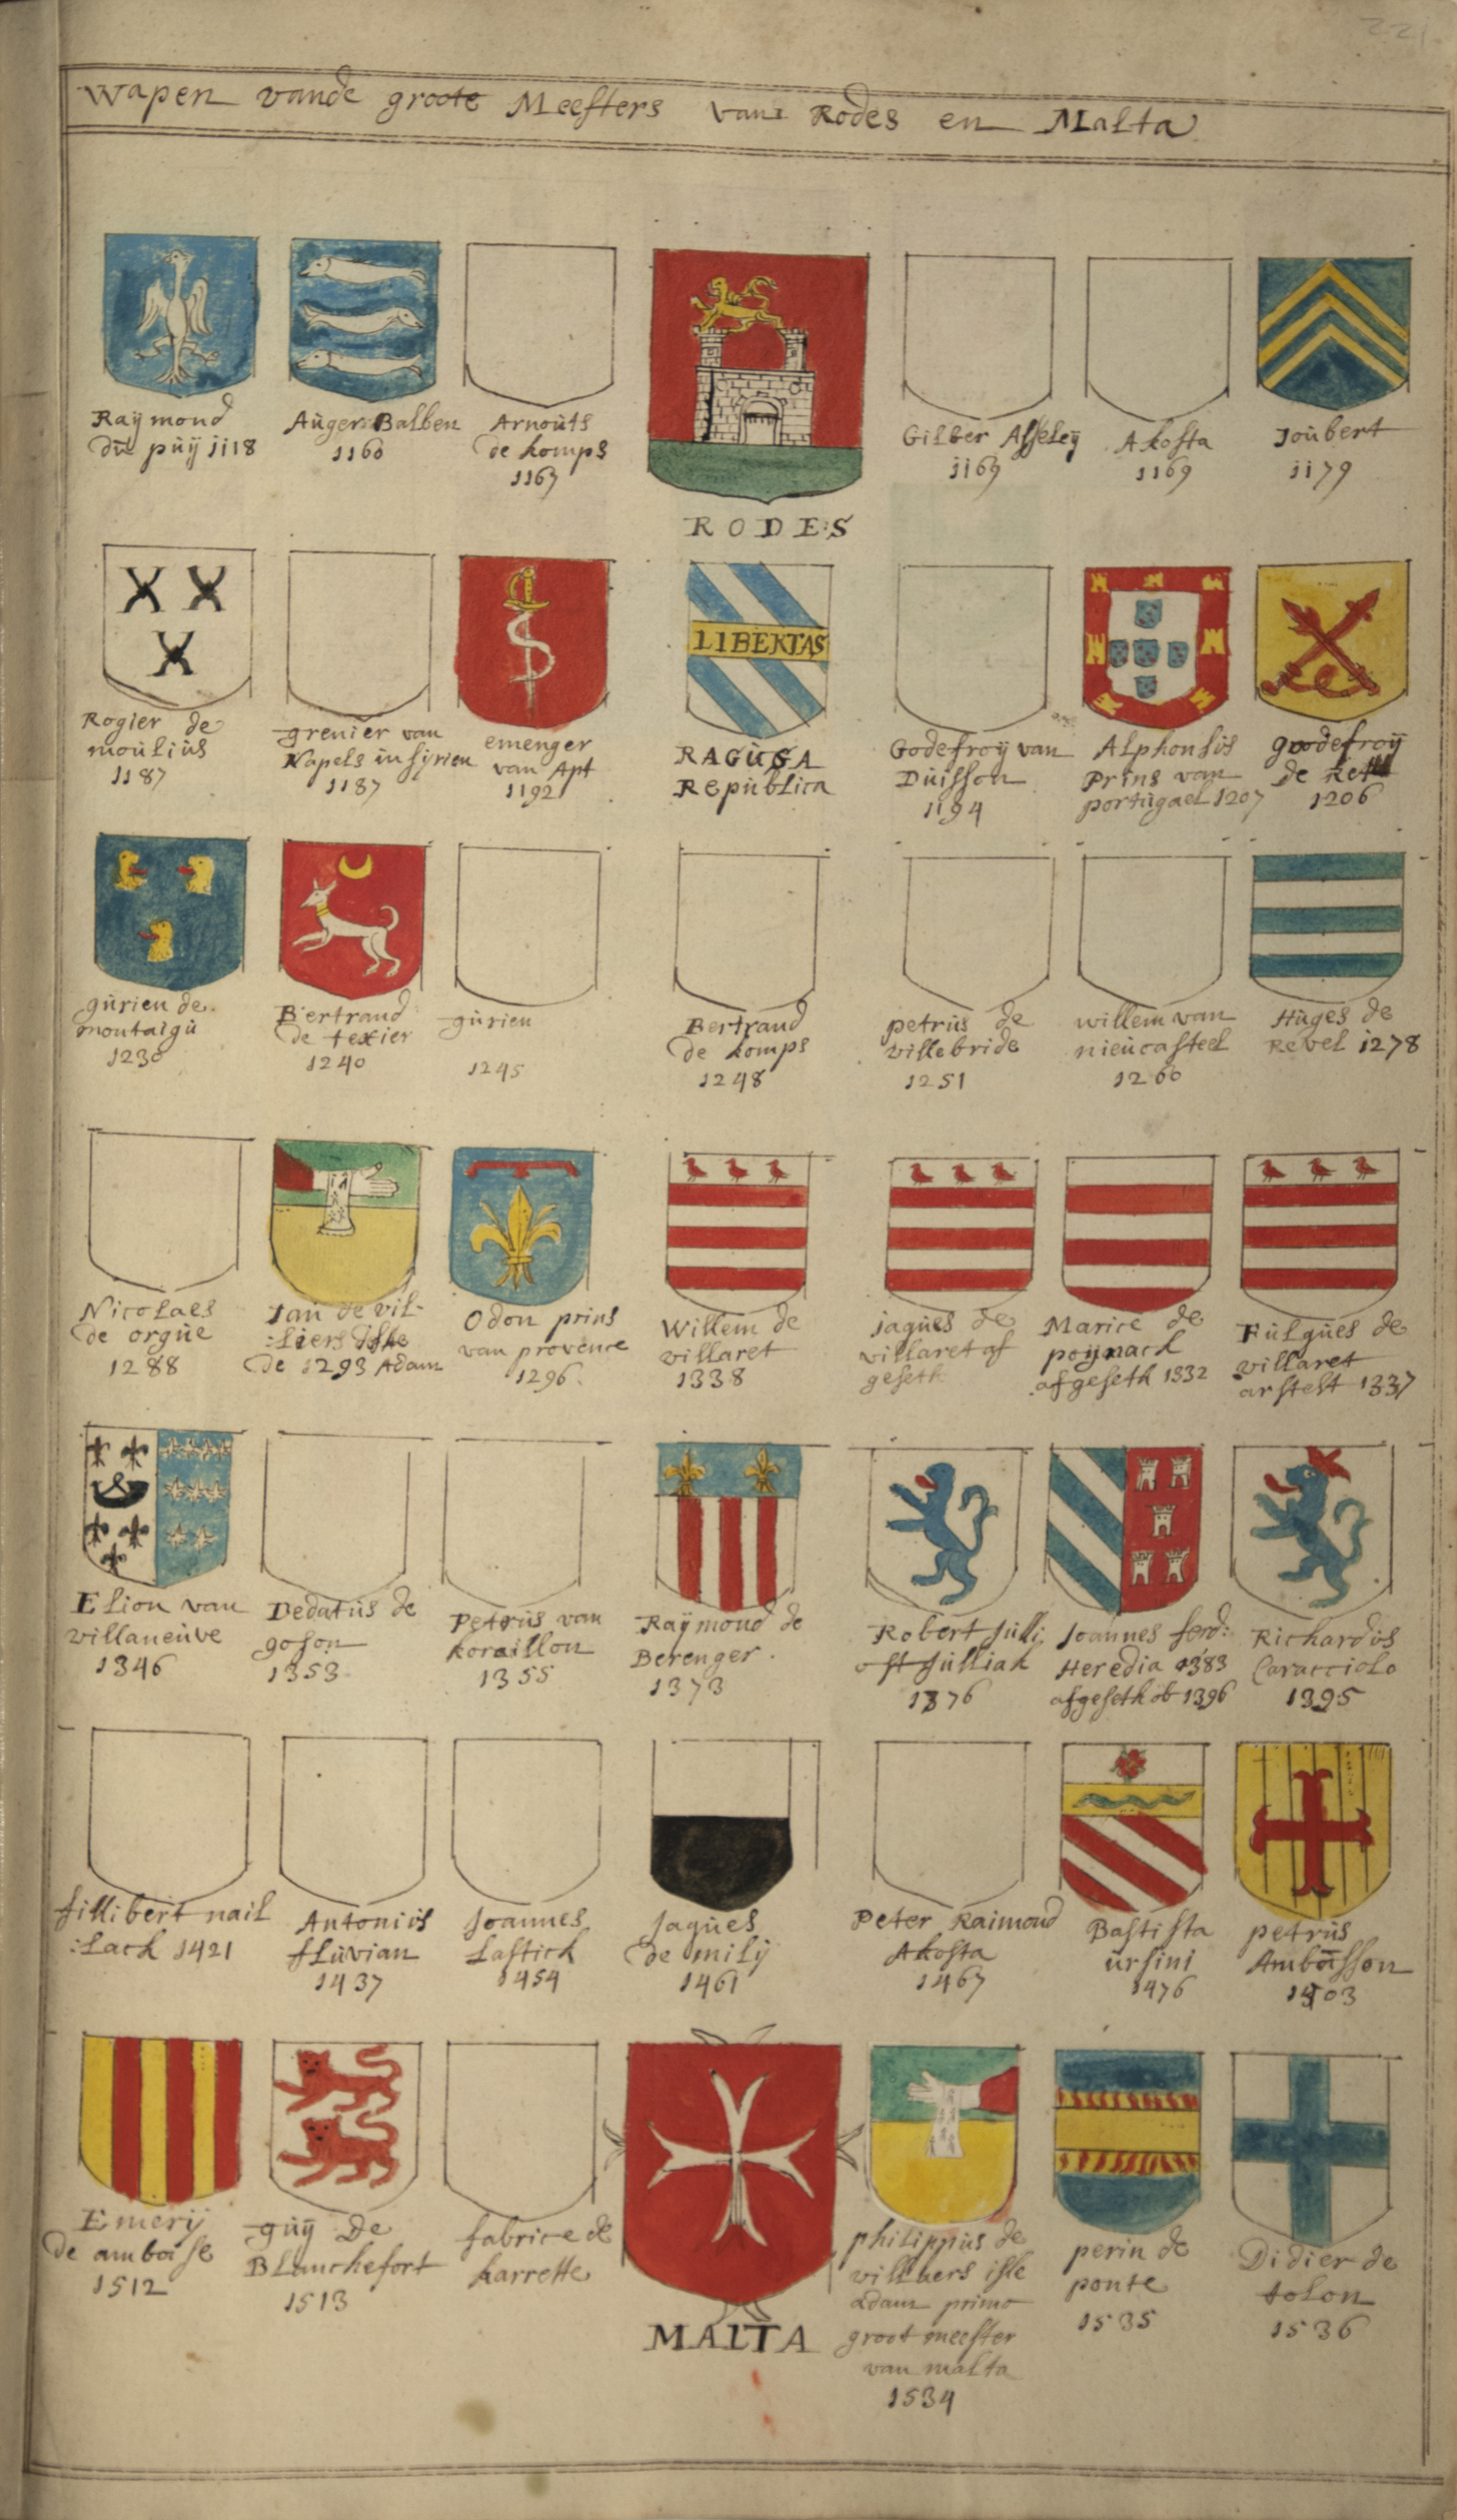 221
Wapen vande groote Meesters vane Rodes en Malta
Raÿmond
du puÿ 1118
Auger Balben
1160
Arnouts
de komps
1163
RODES
Gilber Asseleÿ
1163
Akosta
1169
Joubert
1179
Rogier de
moulius
1187
grenier van
Napels in sÿrien
1187
emenger
van Apt
1192
LIBERTAS
RAGUSA
Republica
Godefroÿ van
Duisson
1194
Alphonsus
Prins van
portugael 1207
goodefroÿ
de
1206
gurien de
montaigu
1230
Bertrand
de texier
1240
gurien
1245
Bertrand
de komps
1248
petrus de
villebride
1251
willem van
nieucasteel
1260
Huges de
Revel 1278
Nicolaes
de orgue
1288
Jan de vil-
:liers Isle
de 1293 Adam
Odon prins
van provence
1296
Willem de
villaret
1338
jaques de
villaret af
geseth
Marice de
poÿnack
afgeseth 1332
Fulgues de
villaret
arstelt 1337
Elion van
villaneuve
1346
Dedatus de
goson
1353
Petrus van
koraillon
1355
Raÿmond de
Berenger
1373
Robert Julli
oft Julliak
1376
Joannes ferd:
Heredia 1383
afgeseth ob 1396
Richardus
Caracciolo
1395
fillibert nail
:lack 1421
Antonius
fluvian
1437
Joannes
Lastick
1454
Jaques
de milÿ
1461
Peter Raimond
Akosta
1467
Bastista
ursini
1476
petrus
Amboisson
1503
Emerÿ
de amboise
1512
guÿ De
Blanchefort
1513
fabrice de
karrette
MALTA
philippus de
villiers isle
adam primo
groot meester
van malta
1534
perin de
ponte
1535
Didier de
tolon
1536